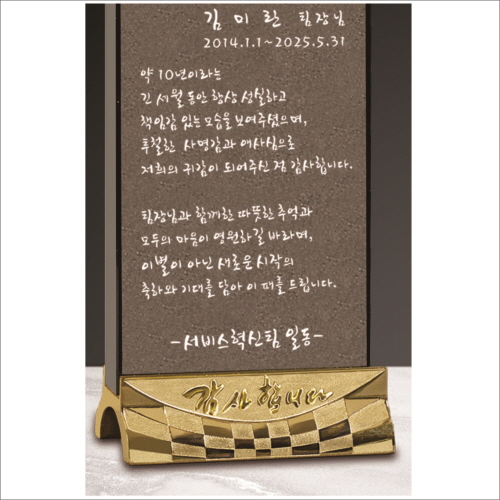 김미란 팀장님
2014.1.1~2025.5.31
약 10년이라는
긴 세월 동안 항상 성실하고
책임감 있는 모습을 보여주셨으며,
투철한 사명감과 애사심으로
저희의 귀감이 되어주신 점 감사합니다.
팀장님과 함께한 따뜻한 추억과
모두의 마음이 영원하길 바라며,
이별이 아닌 새로운 시작의
축하와 기대를 담아 이 패를 드립니다.
-서비스혁신팀 일동-
감사합니다